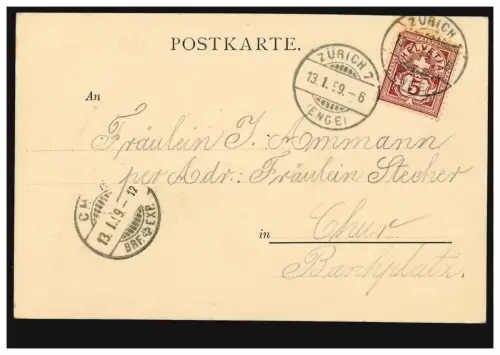 POSTKARTE.
ZÜRICH 7
13.I.99.-6
(ENGE)
ZÜRICH
HELVETIA
5
An
Fräulein J. Ammann
per Adr: Fräulein Stecher
in Chur
Bankplatz.
CH
13.I.99.-12
BRF. EXP.